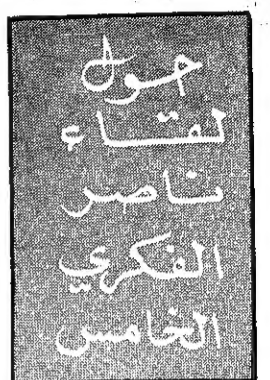 حول
لقاء
ناصر
الفكري
الخامس